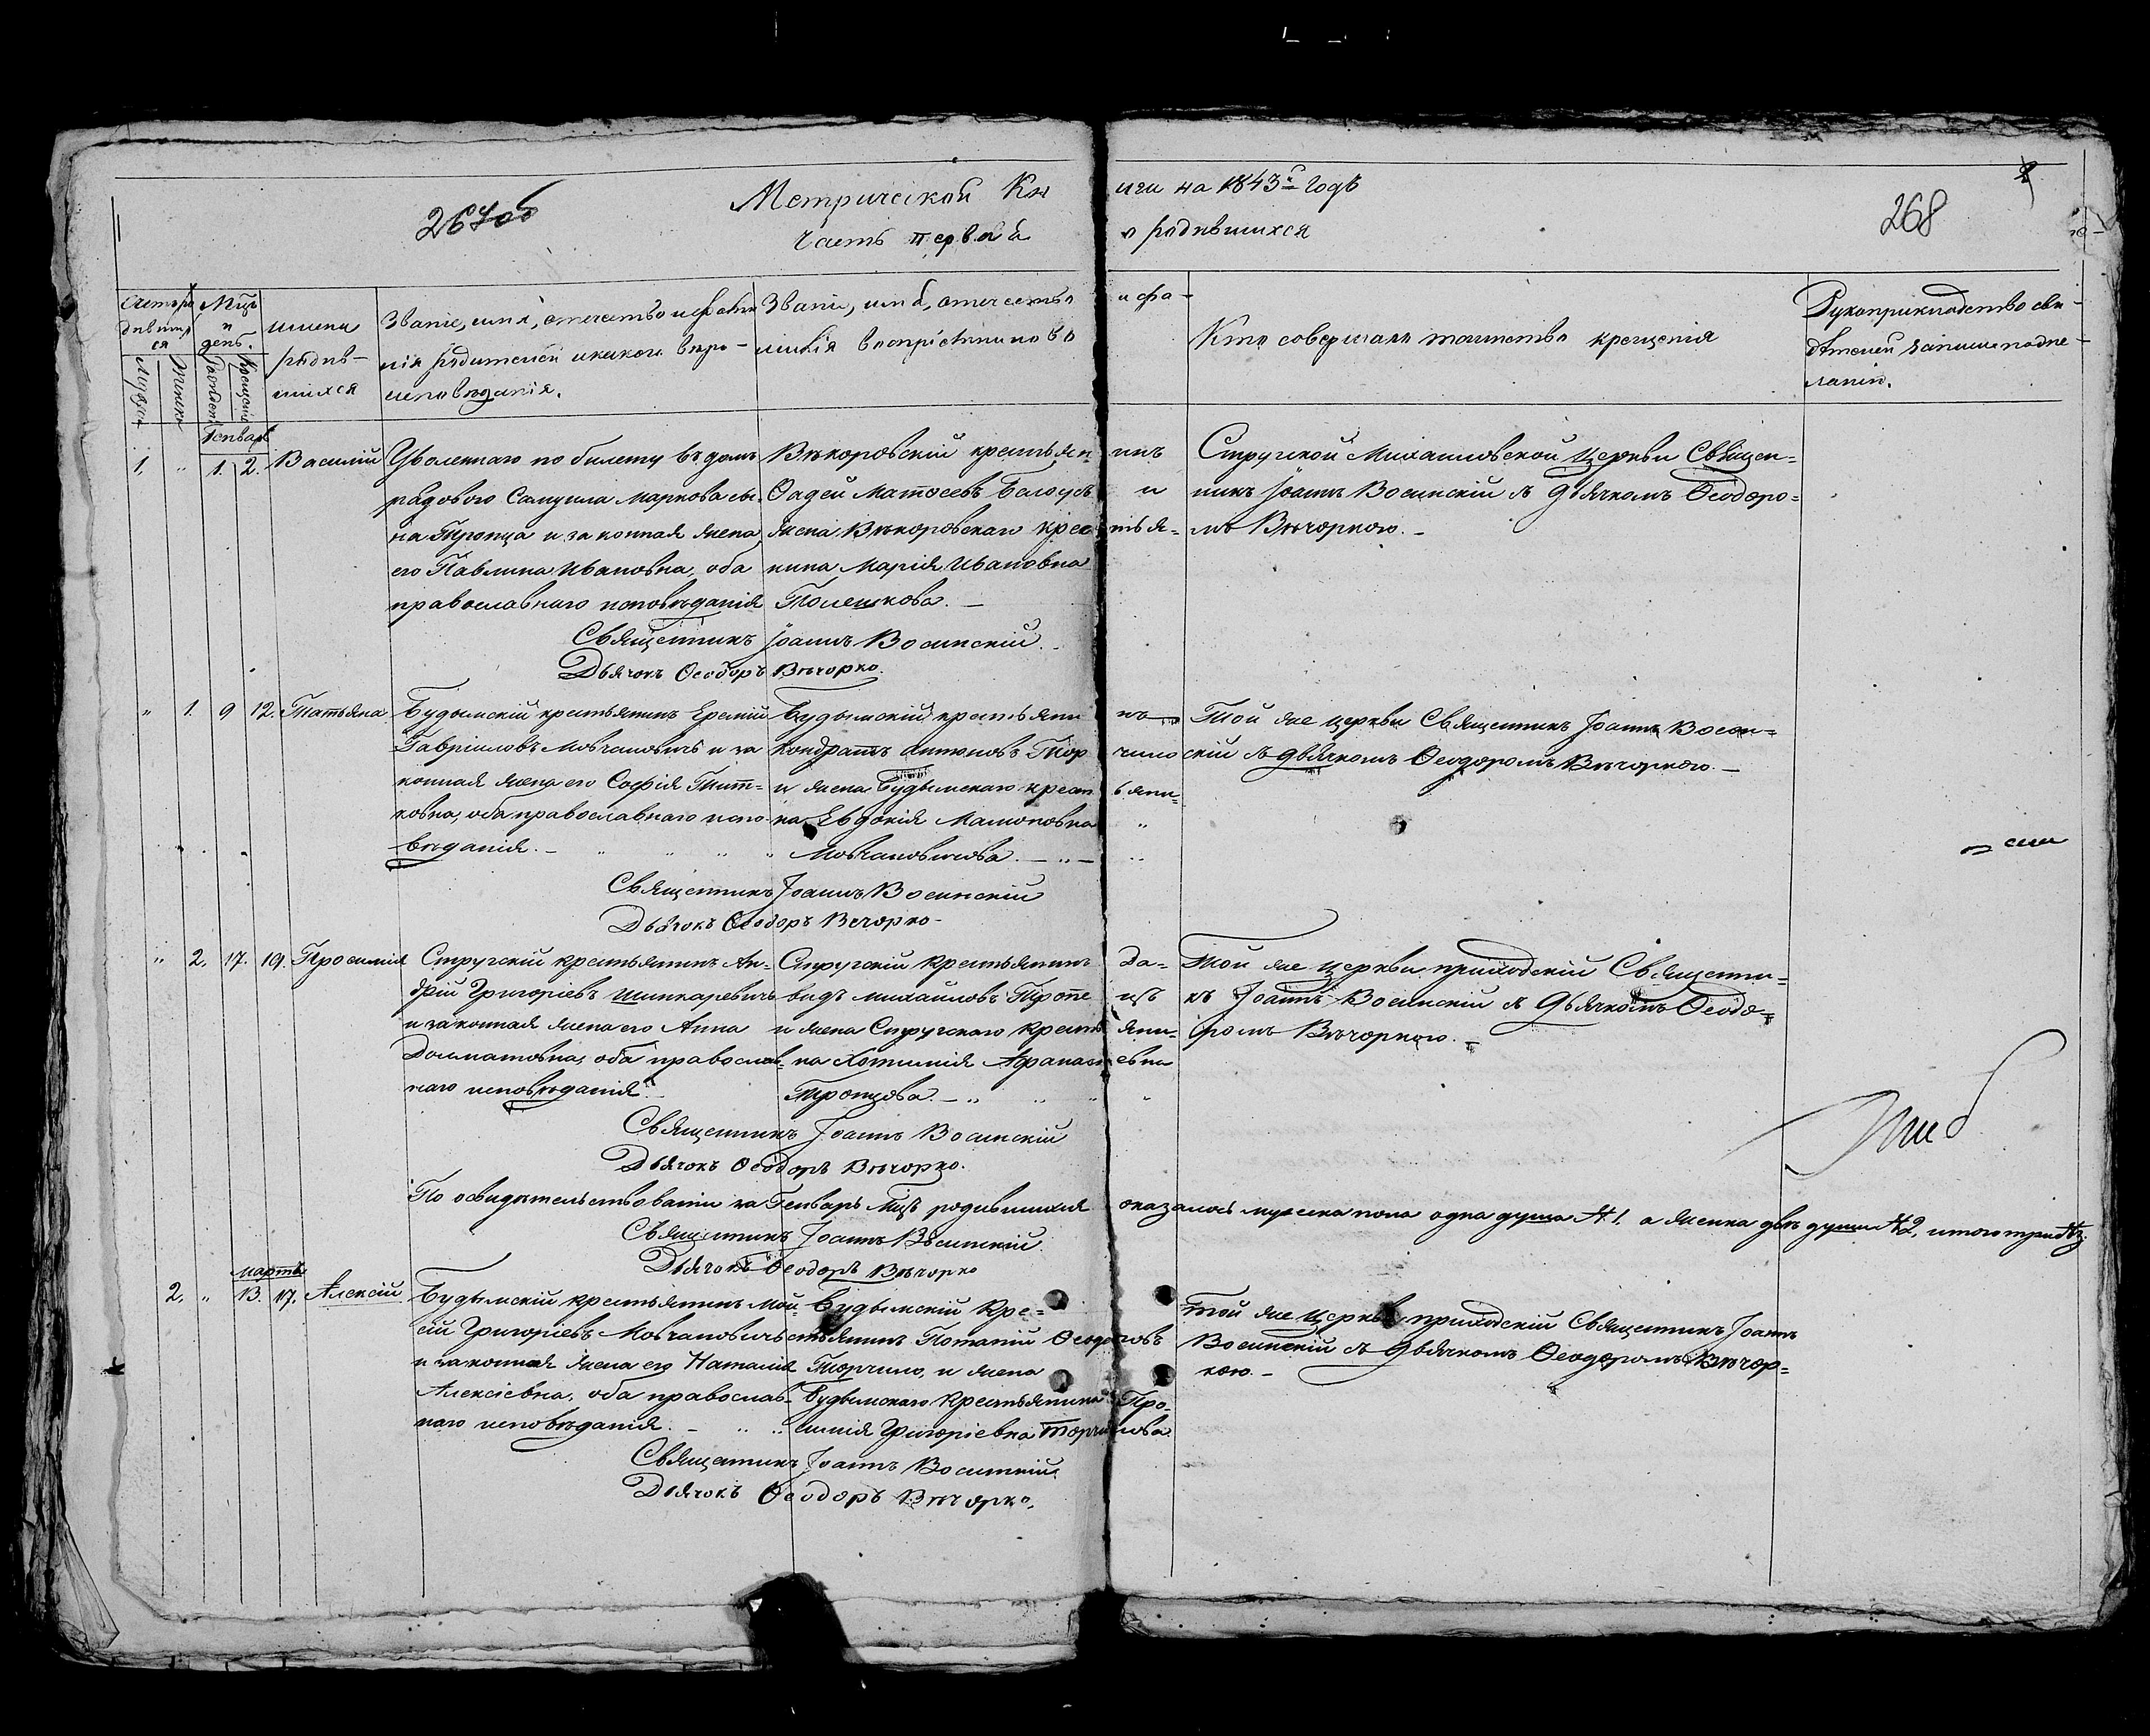 267об
268
Метрической Книги на 1843й Годъ
Часть первая о родившихся
Счетъ родившихся
Мцъ и день.
Мужеска
Женска
Рожденія
Крещенія
имена родившихся
Званіе, имя, отечество и фамилія родителей и какого вѣроисповѣданія.
Званіе, имя, отечество и фамилія воспріемниково
Кто совершалъ таинство крещенія
Рукоприкладство свидѣтелей записи по желанію.
Генварь
1. „ 1. 2. Василій
Уволеннаго по билету въ домъ
рядового Самуила Маркова сы-
на Тропца и законная жена
его Павлина Ивановна, оба
православнаго исповѣданія
крестьянинъ
Фадей Матѳеевъ Белоусъ и
жена крестья-
нина Марія Ивановна
Стругской Михаиловской Церкви Священ-
никъ Іоаннъ Воеинскій съ дьячкомъ Ѳеодоро-
мъ Вѣчоркою.-
Священникъ Іоаннъ Воеинскій
Дьячокъ Ѳеодоръ Вѣчорко.
„ 1. 9 12. Татьяна
Будымскій крестьянинъ Еремій
Гавріиловъ Мовчановичъ и за
конная жена его Софія Тит-
ковна, оба православнаго испо-
вѣданія.-
Будымскій крестьянинъ
Кондратъ Антоновъ Торчило
и жена Будымскаго крестьяни-
на Евдокія
Мовчановичова.-„-
Той же церкви Священникъ Іоаннъ Воеин=
скій съ дьячкомъ Ѳеодоромъ Вѣчоркою.-
Священникъ Іоаннъ Воеинскій
Дьячокъ Ѳеодоръ Вечорко-
„ 2. 17. 19. Просимія
Стругскій крестьянинъ Ан-
дрій Григоріевъ Шинкаревичъ
и законная жена его Анна
Долматовна, оба православ-
наго исповѣданія.-
Стругскій крестьянинъ Да-
видъ Михайловъ
и жена Стругскаго крестьяни-
на Хотимія Афанасьевна
Тропцова.-
Той же церкви приходскій Священни-
къ Іоаннъ Воеинскій съ дьячкомъ Ѳеодо=
ромъ Вѣчоркою.-
Священникъ Іоаннъ Воеинскій
Дьячокъ Ѳеодоръ Вѣчорко.
По освидѣтельствованіи за Генварь Мцъ родившихся оказалось мужеска пола одна душа №1. а женска двѣ души №2, итого три
Священникъ Іоаннъ Воеинскій
Дьячокъ Ѳеодоръ Вѣчорко
мартъ
2. „ 13. 17. Алексій
Будымскій крестьянинъ Мой-
сій Григоріевъ Мовчановичъ
и законная жена его Наталія
Алексіевна, оба православ-
наго исповѣданія.-
Будымскій Кре=
стьянинъ Потапій Ѳеодоровъ
Торчило, и жена
Будымскаго крестьянина Про-
симія Григоріевна Торчилова
Той же церкви приходскій Священникъ Іоаннъ
Воеинскій съ дьячкомъ Ѳеодоромъ Вѣчор=
кою.-
Священникъ Іоаннъ Воеинскій
Дьячокъ Ѳеодоръ Вѣчорко.